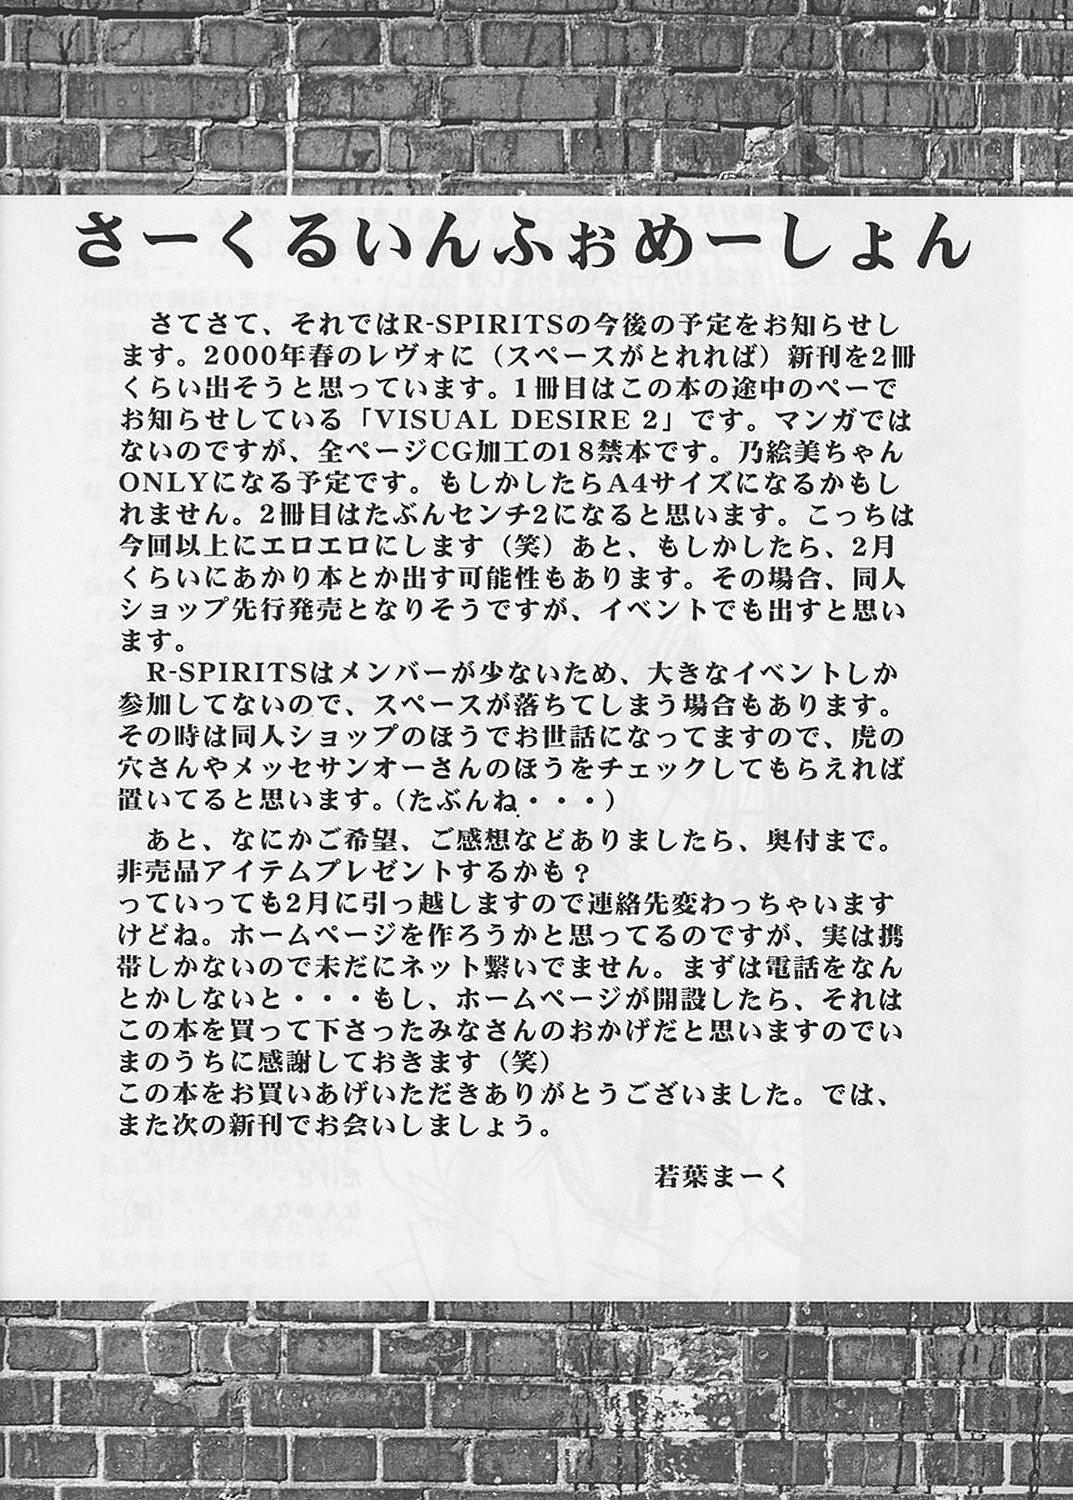 さーくるいんふぉめーしょん
さてさて、それではR-SPIRITSの今後の予定をお知らせし
ます。2000年春のレヴォに（スペースがとれれば）新刊を2冊
くらい出そうと思っています。1冊目はこの本の途中のペーで
お知らせしている「VISUAL DESIRE 2」です。マンガでは
ないのですが、全ページCG加工の18禁本です。乃絵美ちゃん
ONLYになる予定です。もしかしたらA4サイズになるかもし
れません。2冊目はたぶんセンチ2になると思います。こっちは
今回以上にエロエロにします（笑）あと、もしかしたら、2月
くらいにあかり本とか出す可能性もあります。その場合、同人
ショップ先行発売となりそうですが、イベントでも出すと思い
ます。
R-SPIRITSはメンバーが少ないため、大きなイベントしか
参加してないので、スペースが落ちてしまう場合もあります。
その時は同人ショップのほうでお世話になってますので、虎の
穴さんやメッセサンオーさんのほうをチェックしてもらえれば
置いてると思います。（たぶんね・・・）
あと、なにかご希望、ご感想などありましたら、奥付まで。
非売品アイテムプレゼントするかも？
っていっても2月に引っ越しますので連絡先変わっちゃいます
けどね。ホームページを作ろうかと思ってるのですが、実は携
帯しかないので未だにネット繋いでません。まずは電話をなん
とかしないと・・・もし、ホームページが開設したら、それは
この本を買って下さったみなさんのおかげだと思いますのでい
まのうちに感謝しておきます（笑）
この本をお買いあげいただきありがとうございました。では、
また次の新刊でお会いしましょう。
若葉まーく